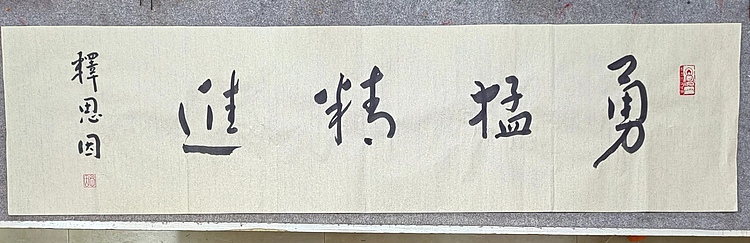 勇猛精進
釋思因